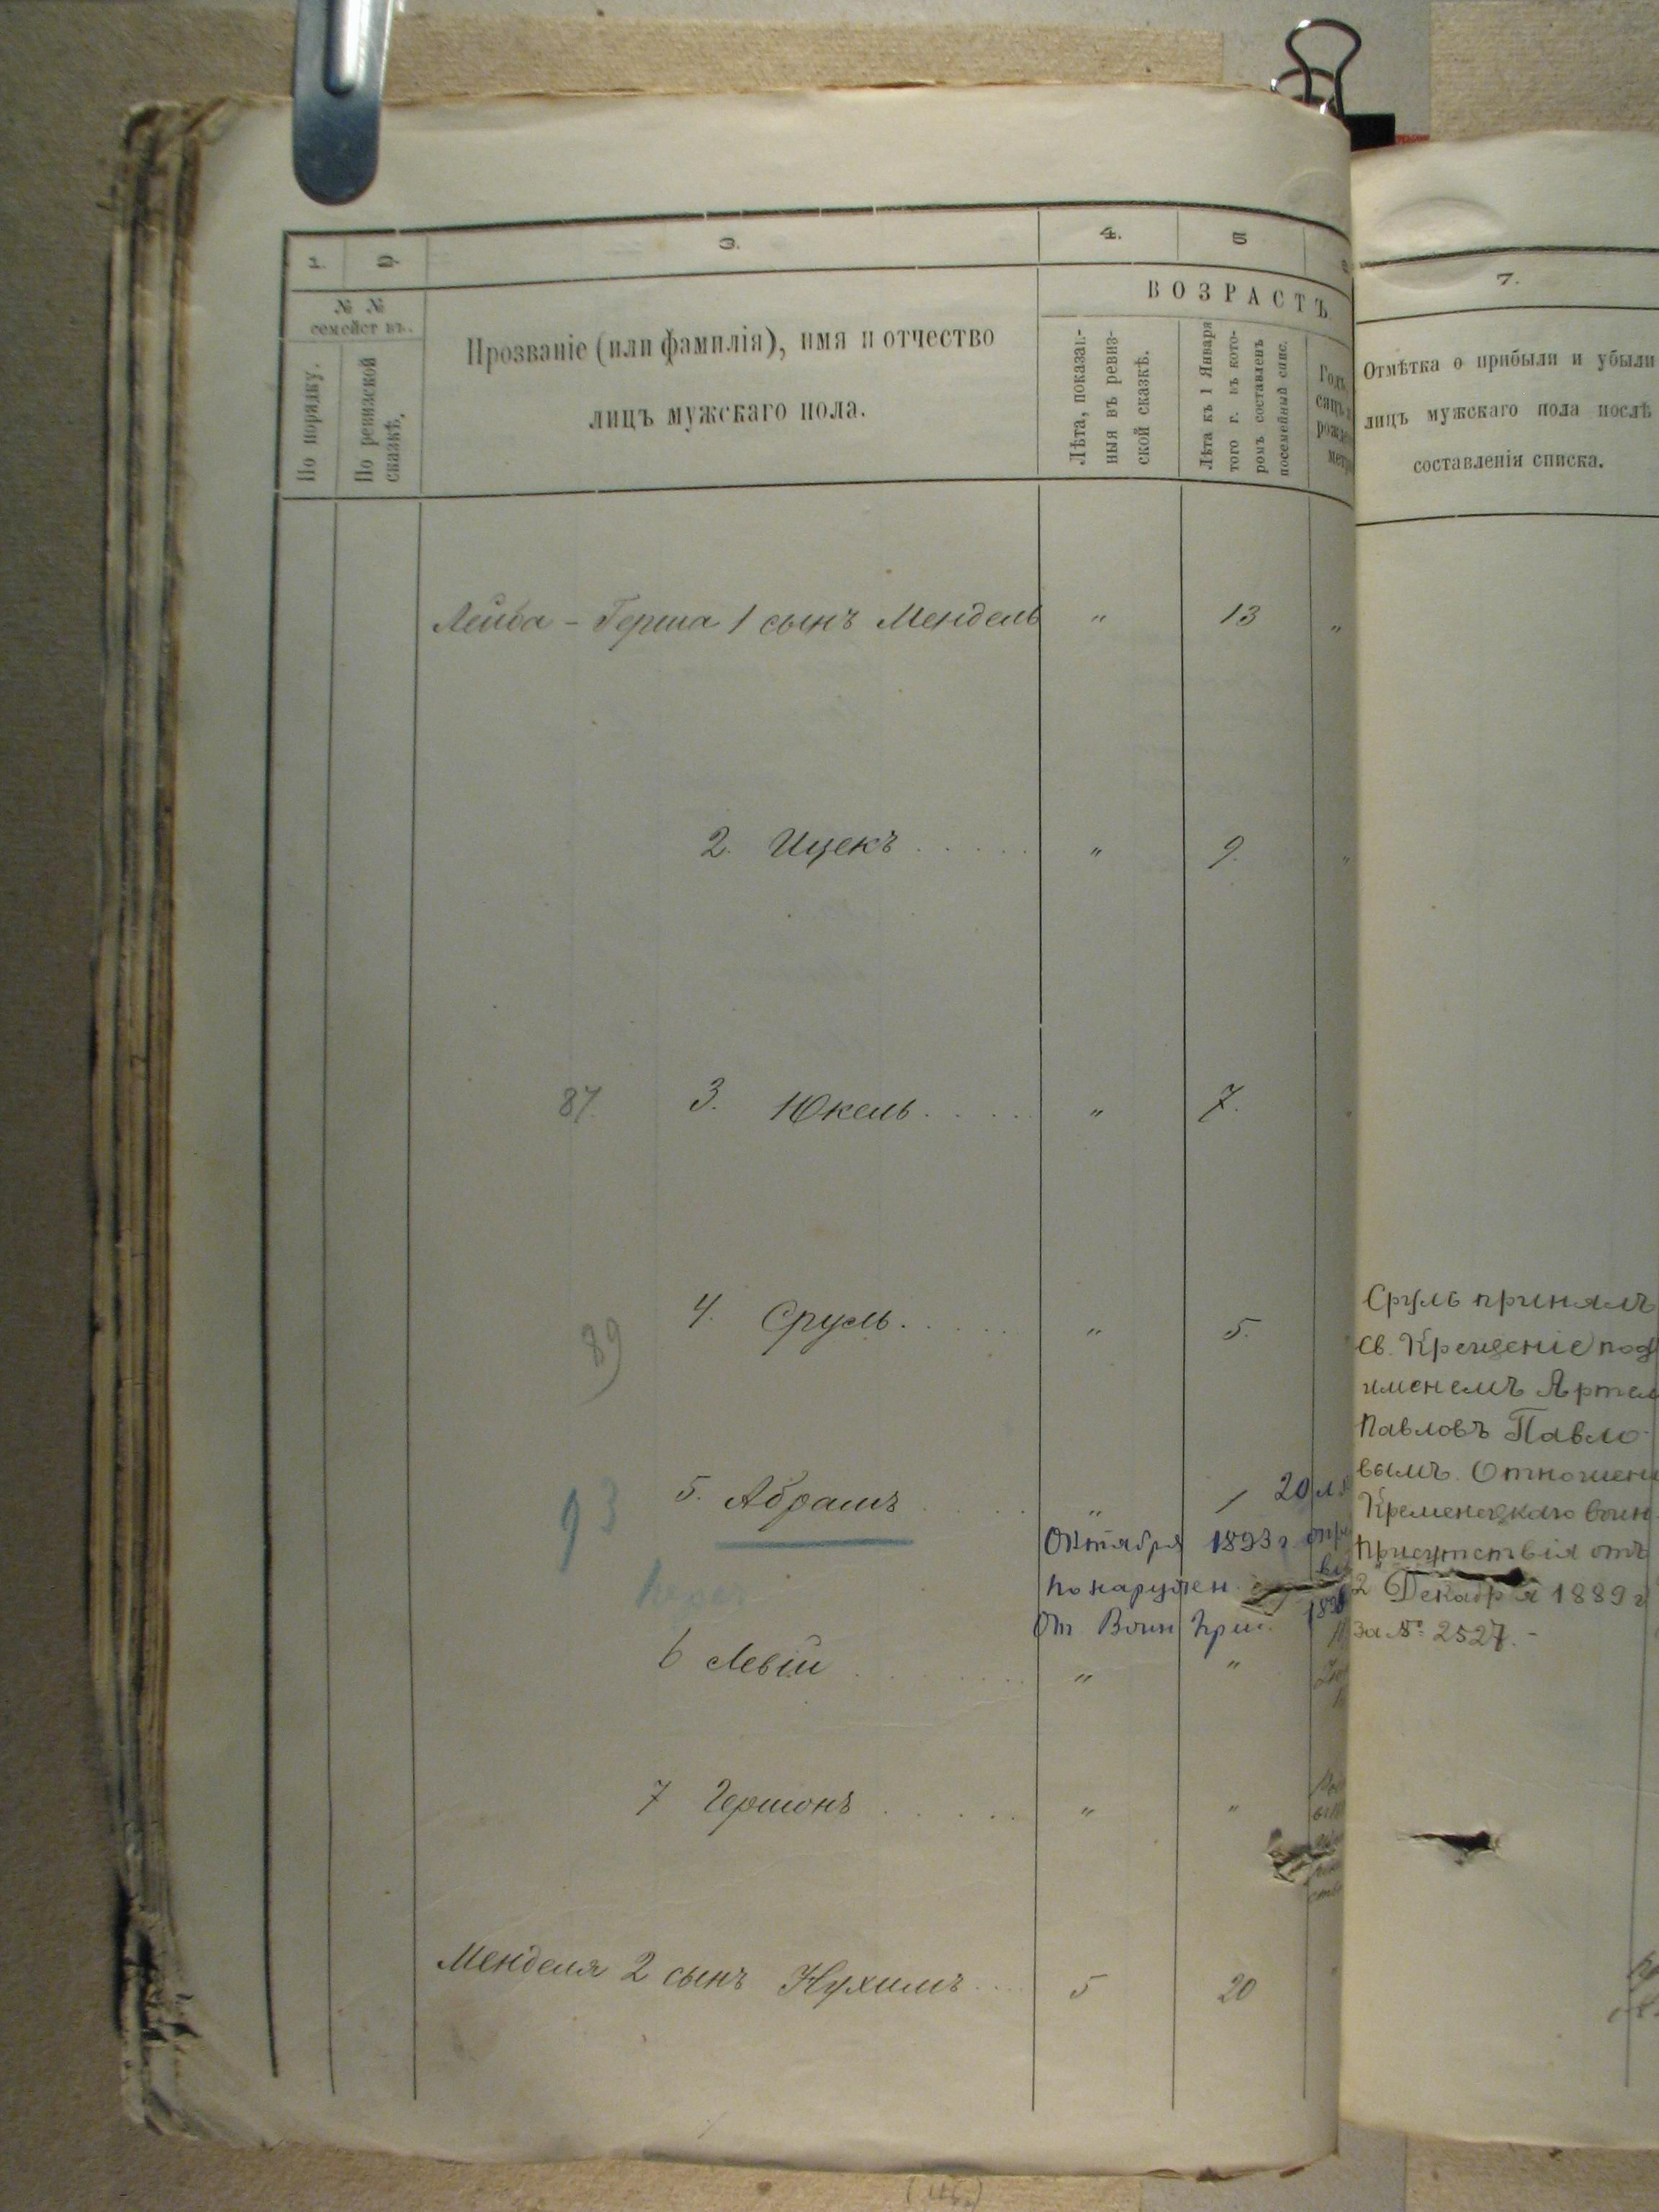 1.
2.
3.
4.
5
7.
№ №
семейств въ.
По порядку.
По ревизской
сказкѣ.
Прозваніе (или фамилія), имя и отчество
лицъ мужскаго пола.
ВОЗРАСТЪ
Лѣта, показан-
ныя въ ревиз-
ской сказкѣ.
Лѣта къ 1 Января
того г. въ кото-
ромъ составленъ
посемейный спис.
Отмѣтка о прибыли и убыли
лицъ мужскаго пола послѣ
составленія списка.
Лейба-Герша 1 сынъ Мендель " 13 "
2. Ицекъ " 9. "
87. 3. Юкель " 7.
89 4. Сруль " 5.
93 5. Абрамъ " 1
20
Октября 1893 г
По наружн.
От Воин Прис.
6 Левій " "
7 Гершонъ " "
Менделя 2 сынъ Нухимъ 5 20 "
Сруль принялъ
св. Крещеніе под
именемъ Артем
Павловъ Павло-
вымъ. Отношен
Кременецкаго Воин.
Присутствія отъ
2 Декабря 1889 г
за № 2527.-